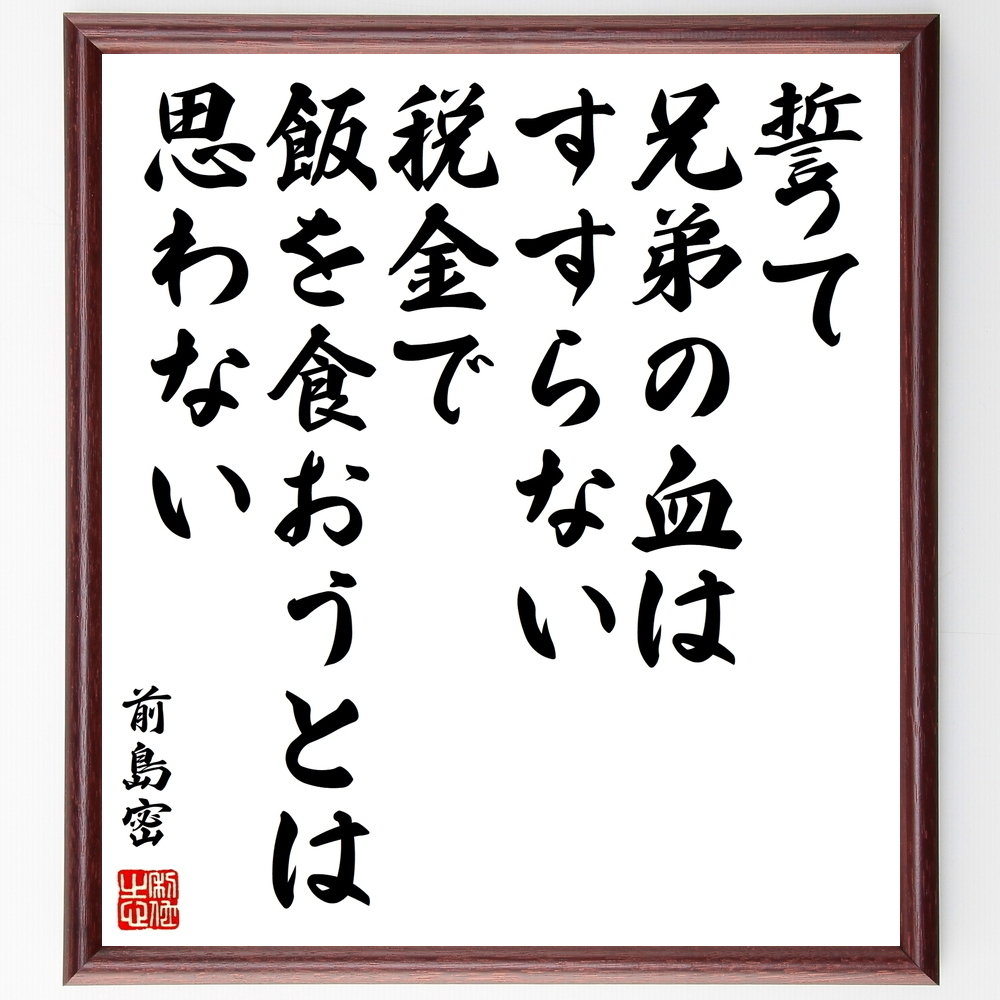 誓って
兄弟の血は
すすらない
税金で
飯を食おうとは
思わない
前島密